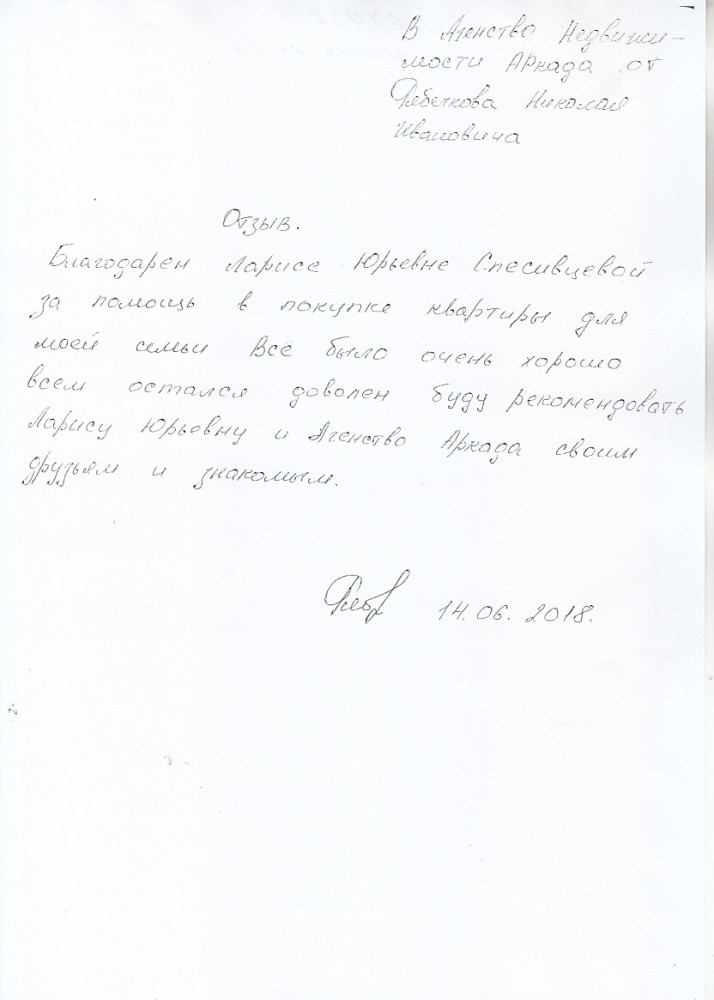 В Агенство Недвижи-
мости Аркада от
Рябечкова Николая
Ивановича
Отзыв.
Благодарен Ларисе Юрьевне Спесивцевой
за помощь в покупке квартиры для
моей семьи Всё было очень хорошо
всем остался доволен буду рекомендовать
Ларису Юрьевну и Агенство Аркада своим
друзьям и знакомым.
14.06.2018.